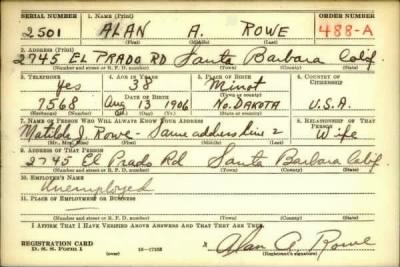 SERIAL NUMBER 1. NAME (Print) ORDER NUMBER
2501 ALAN A. ROWE 488-A
(First) (Middle) (Last)
2. ADDRESS (Print)
2745 EL PRADO RD Santa Barbara Calif.
(Number and street or R. F. D. number) (Town) (County) (State)
3. TELEPHONE 4. AGE IN YEARS 5. PLACE OF BIRTH 6. COUNTRY OF CITIZENSHIP
Yes 38 Minot
DATE OF BIRTH (Town or county)
7568 Aug 13 1906 No. DAKOTA U.S.A.
(Exchange) (Number) (Mo.) (Day) (Yr.) (State or country)
7. NAME OF PERSON WHO WILL ALWAYS KNOW YOUR ADDRESS 8. RELATIONSHIP OF THAT PERSON
Matilda J. Rowe - Same address line 2 Wife
(Mr., Mrs., Miss) (First) (Middle) (Last)
9. ADDRESS OF THAT PERSON
2745 El Prado Rd Santa Barbara Calif.
(Number and street or R. F. D. number) (Town) (County) (State)
10. EMPLOYER'S NAME
Unemployed
11. PLACE OF EMPLOYMENT OR BUSINESS
(Number and street or R. F. D. number) (Town) (County) (State)
I AFFIRM THAT I HAVE VERIFIED ABOVE ANSWERS AND THAT THEY ARE TRUE.
REGISTRATION CARD
D. S. S. Form 1 (over) 16-17105 Alan A. Rowe